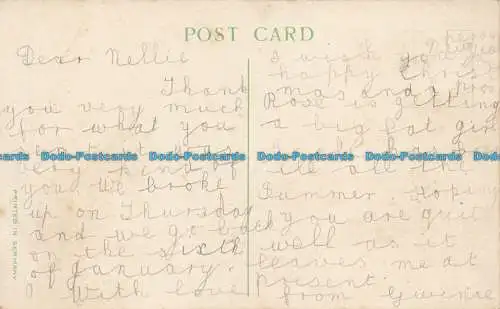 POST CARD
Dear Nellie
Thank
you very much
for what you
sent it was
very kind of
you. We broke
up on Thursday
and we go back
on the sixth
of January.
With love
I wish you a
happy Christ
mas and a
Rose is getting
a big fat girl
ill all the
Summer. Hoping
you are quit
well as it
leaves me at
present.
from Gwennie
PRINTED IN GERMANY
Dodo-Postcards Dodo-Postcards Dodo-Postcards Dodo-Postcards